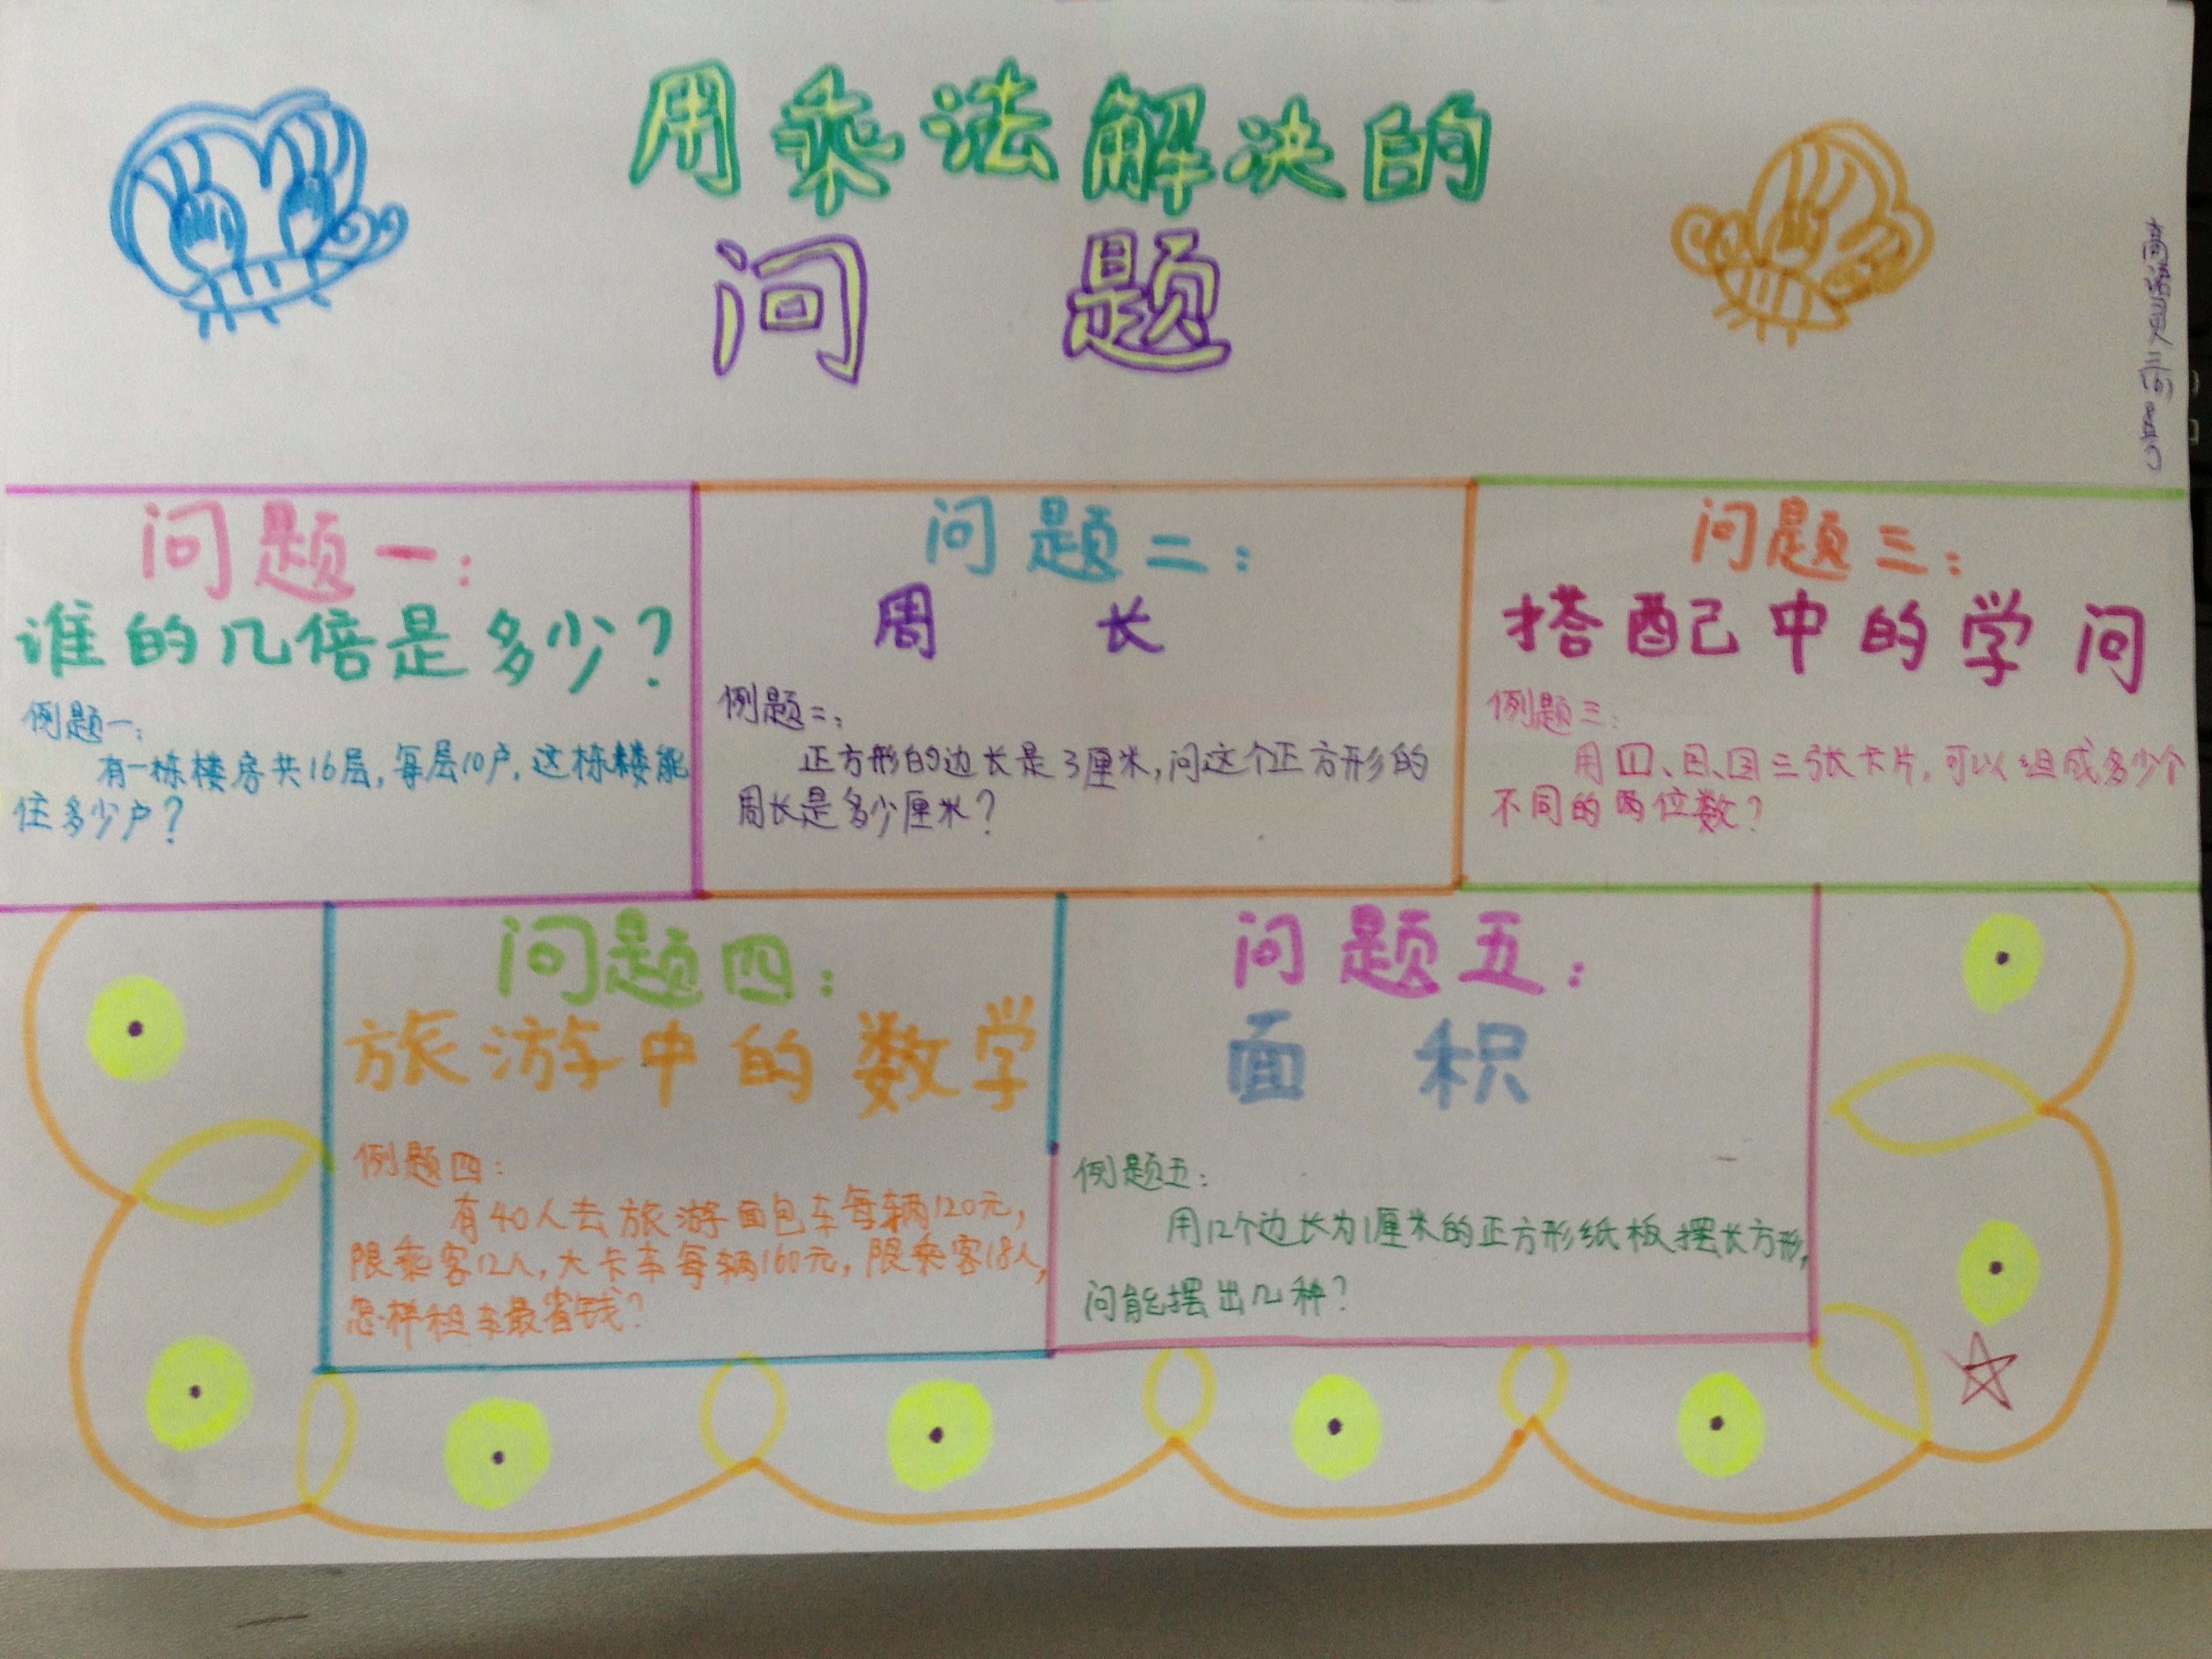 用乘法解决的
问题
问题一：
谁的几倍是多少？
例题一：
有一栋楼房共16层，每层10户，这栋楼能
住多少户？
问题二：
周长
例题二：
正方形的边长是3厘米，问这个正方形的
周长是多少厘米？
问题三：
搭配中的学问
例题三：
三张卡片，可以组成多少个
不同的两位数？
问题四：
旅游中的数学
例题四：
有40人去旅游面包车每辆120元，
限乘客12人，大卡车每辆160元，限乘客18人，
怎样租车最省钱？
问题五：
面积
例题五：
用12个边长为1厘米的正方形纸板摆长方形，
问能摆出几种？